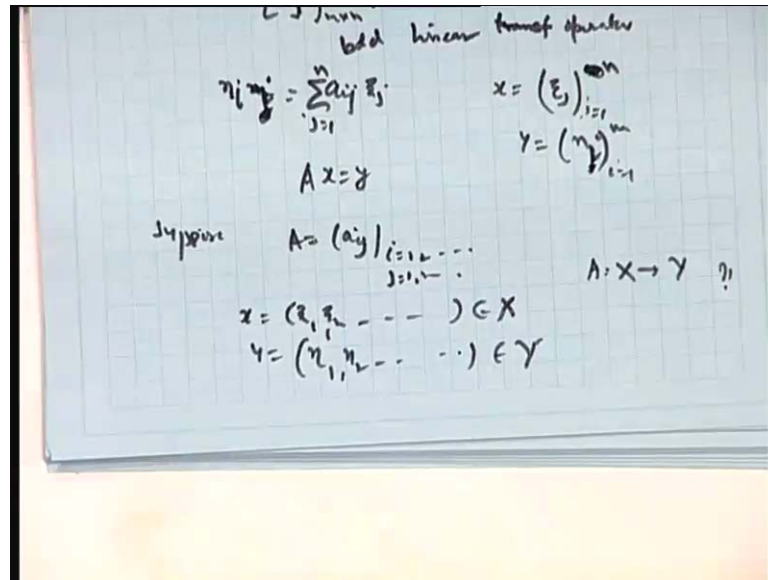 bdd linear transf operator
ηi = Σ_{j=1}^{n} aij ξj    x = (ξj)_{i=1}^{n}
y = (ηj)_{i=1}^{m}
A x = y
Suppose A = (aij) i=1,2, ....
j=1,2, ... A: X → Y ?
x = (ξ1, ξ2 - - - - ) ∈ X
y = (η1, η2 - - · · ) ∈ Y